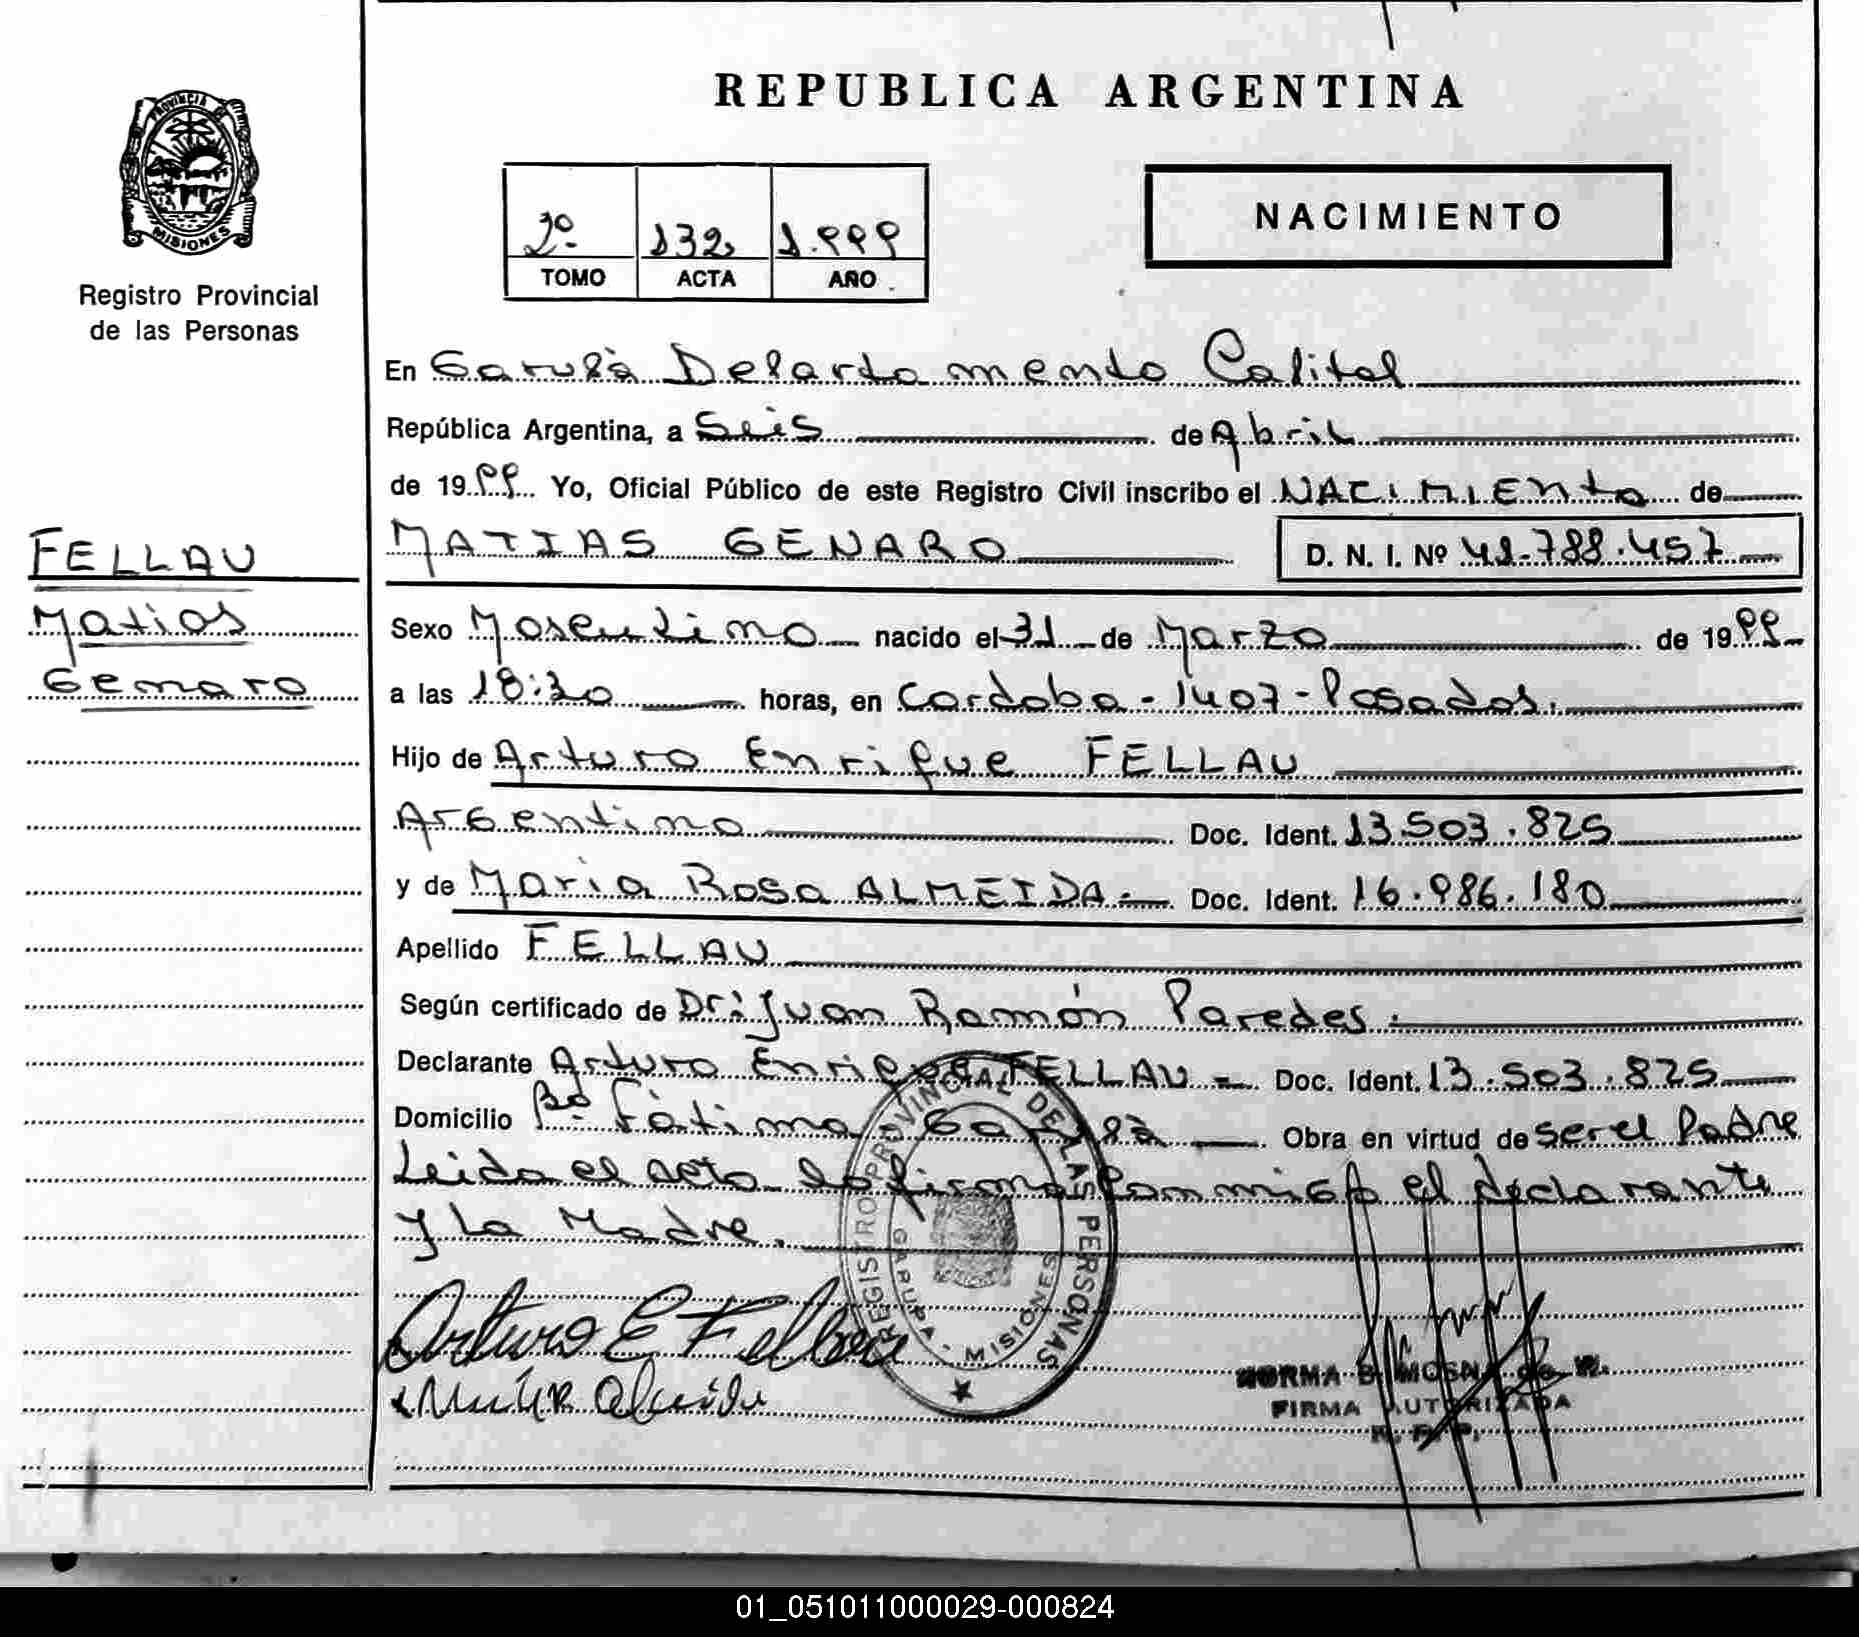 REPUBLICA ARGENTINA
PROVINCIA
MISIONES
Registro Provincial
de las Personas
2º 132 1.999
TOMO ACTA AÑO
NACIMIENTO
En Garupá Departamento Capital
República Argentina, a Seis de Abril
de 1999 Yo, Oficial Público de este Registro Civil inscribo el NACIMIENTO de
FELLAU
Matias
Genaro
MATIAS GENARO D. N. I. Nº 41.788.457
Sexo Masculino nacido el 31 de Marzo de 1999
a las 18:30 horas, en Cordoba - 1407 - Posadas.
Hijo de Arturo Enrique FELLAU
Argentino Doc. Ident. 13.503.825
y de Maria Rosa ALMEIDA.- Doc. Ident. 16.986.180
Apellido FELLAU
Según certificado de Dr: Juan Ramón Paredes.
Declarante Arturo Enrique FELLAU - Doc. Ident. 13.503.825
Domicilio Bº Fátima Garupá Obra en virtud de ser el Padre
Leida el acta la firma conmigo el declarante
y la Madre.
REGISTRO PROVINCIAL DE LAS PERSONAS
GARUPA - MISIONES
Arturo E Fellau
NORMA B. MOSNA de
FIRMA AUTORIZADA
R. P. P.
01_051011000029-000824